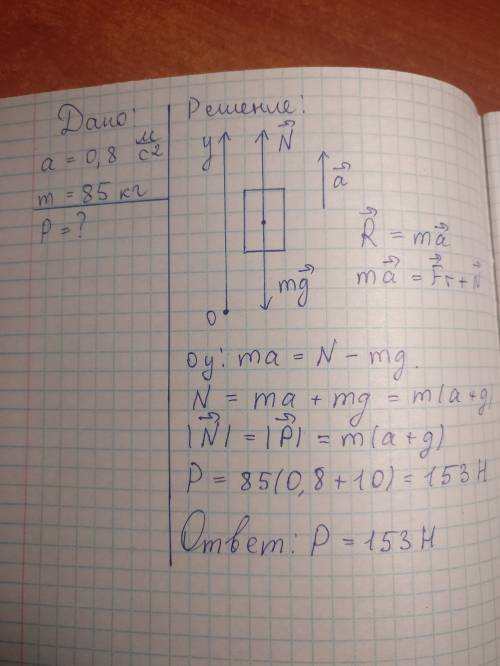 Дано:
a = 0,8 м/с2
m = 85 кг
P = ?
Решение:
y
N⃗
a⃗
mg⃗
0
R⃗ = ma⃗
ma⃗ = F⃗т + N⃗
oy: ma = N - mg.
N = ma + mg = m(a+g)
|N⃗| = |P⃗| = m(a+g)
P = 85(0,8+10) = 153 Н
Ответ: P = 153 Н